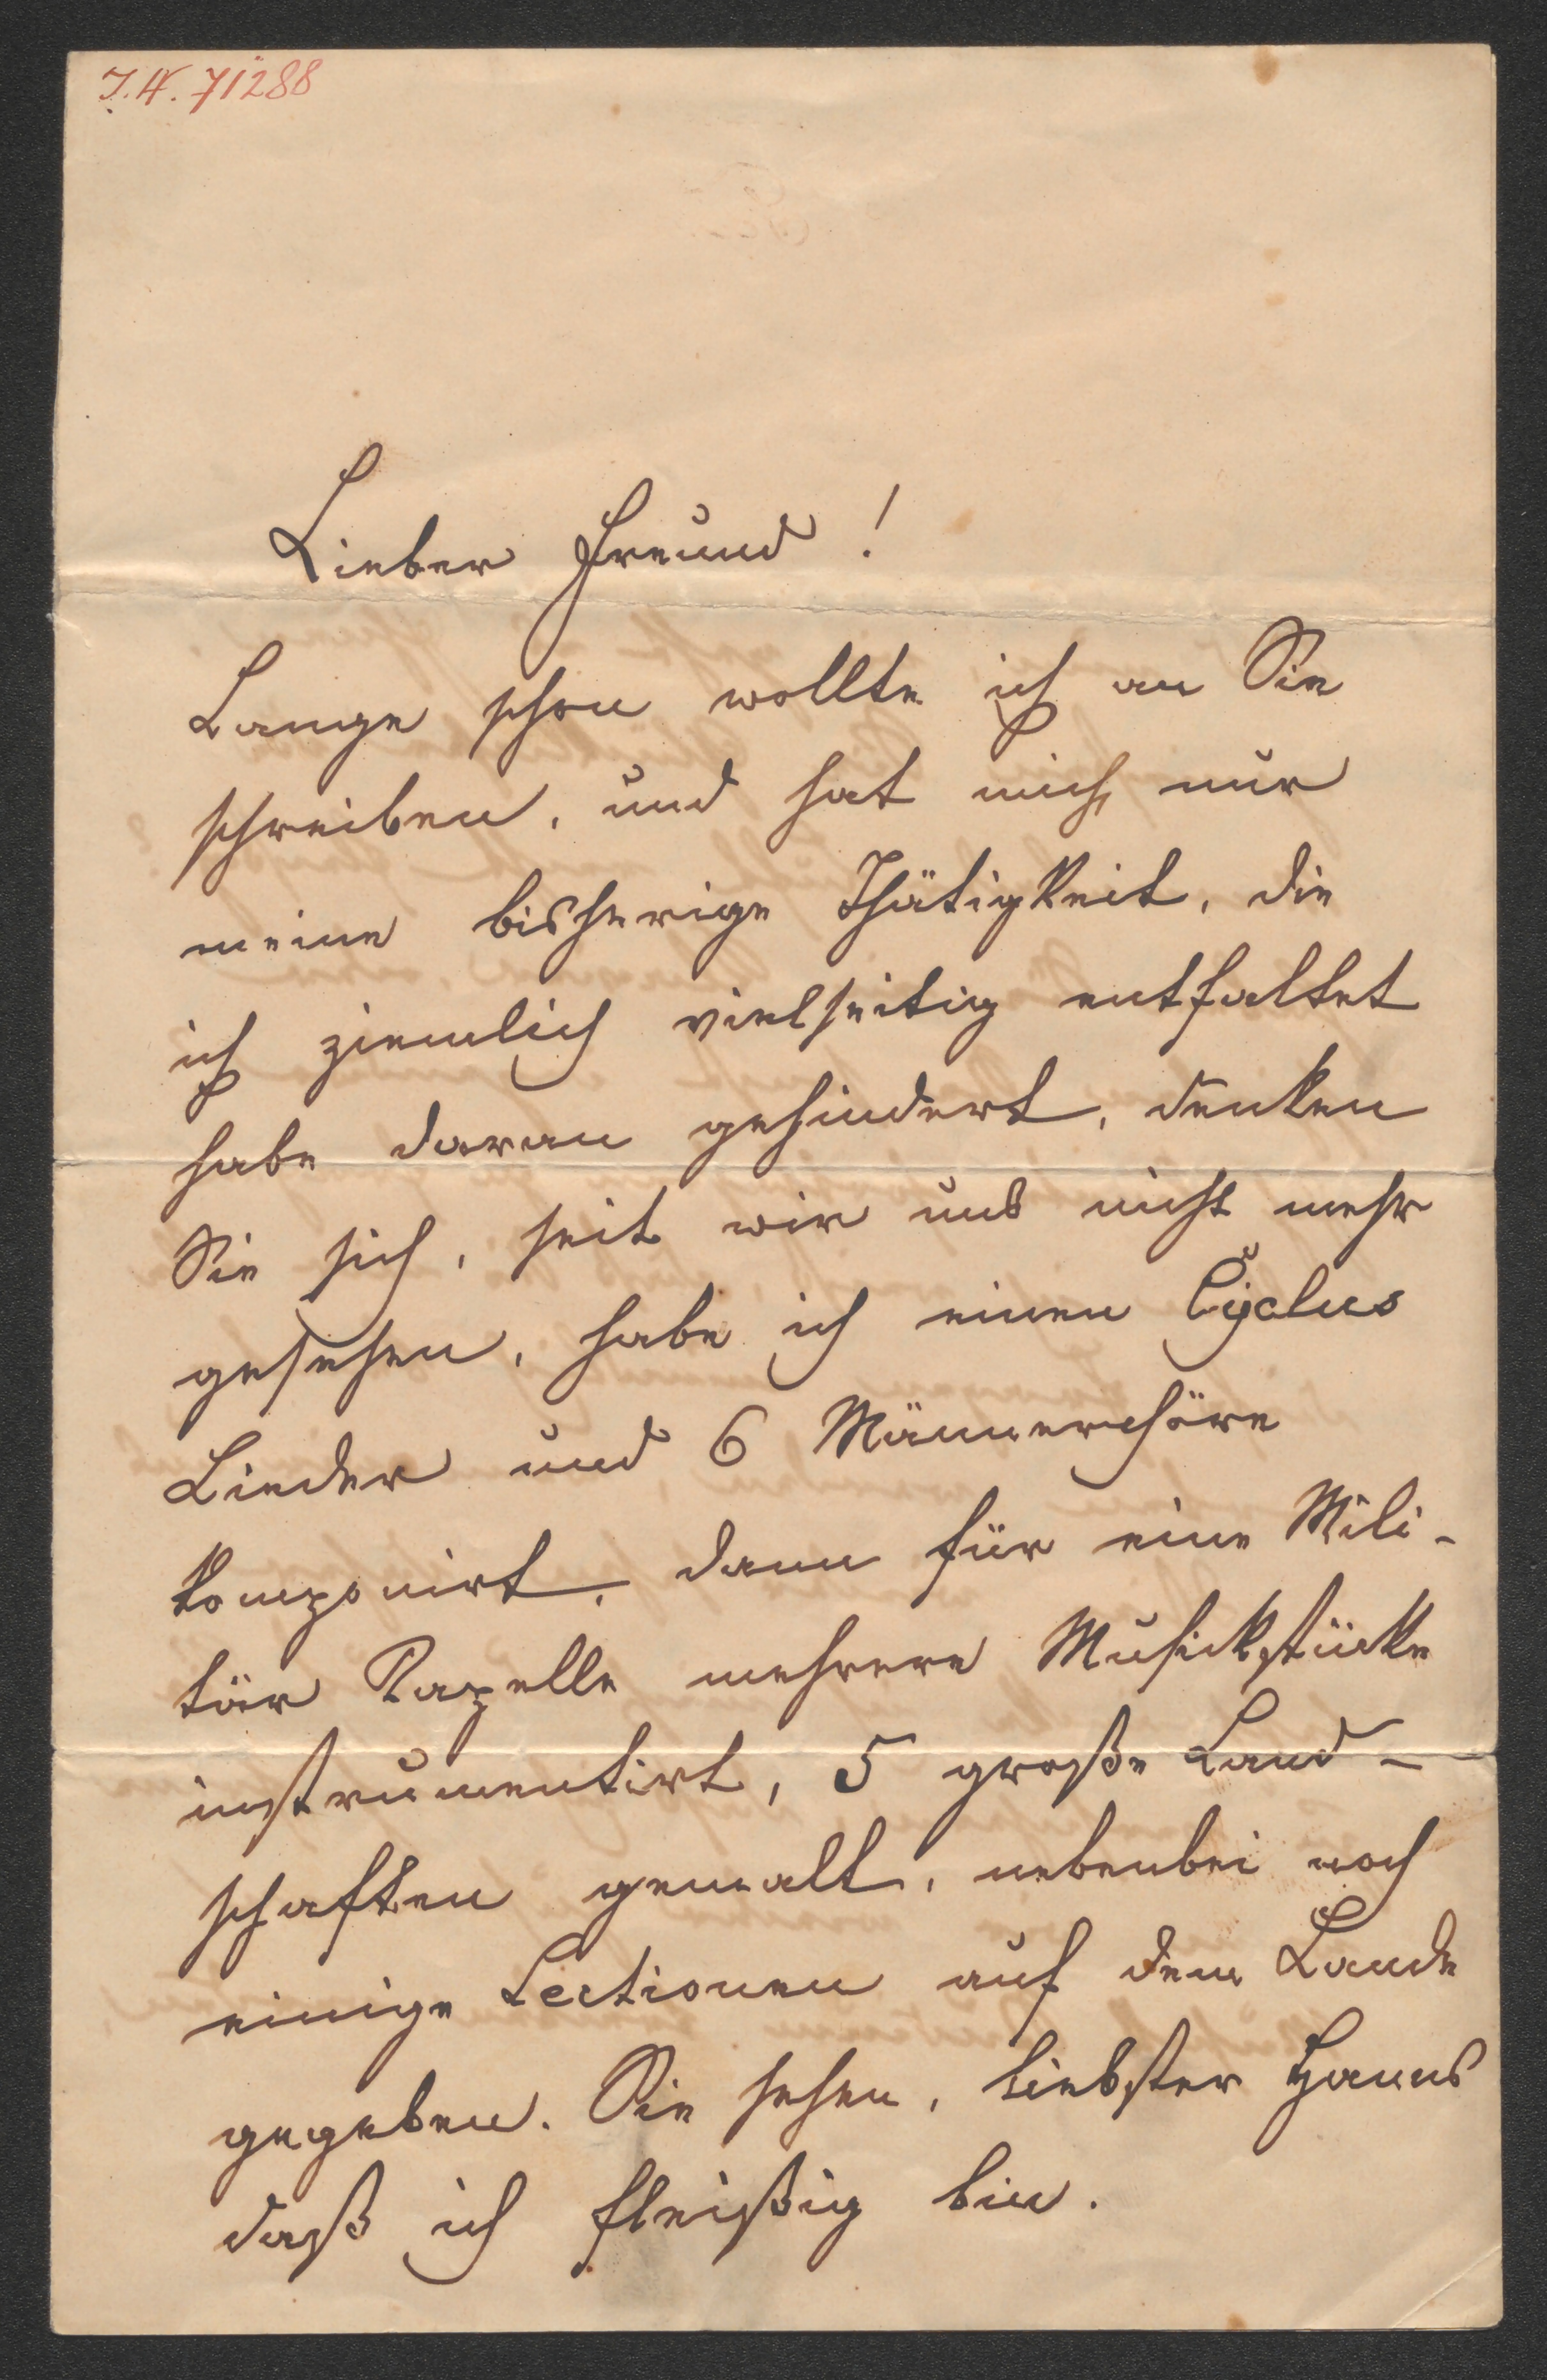 J.N. 71288
Lieber Freund!
Lange schon wollte ich an Sie
schreiben, und hat mich nur
meine bisherige Thätigkeit, die
ich ziemlich vielseitig entfaltet
habe daran gehindert, denken
Sie sich, seit wir uns nicht mehr
gesehen, habe ich einen Cyclus
Lieder und 6 Männerchöre
komponirt, dann für eine Mili-
tär Kapelle mehrere Musickstücke
instrumentirt, 5 große Land-
schaften gemalt, nebenbei noch
einige Lectionen auf dem Lande
gegeben. Sie sehen, liebster Hanns
daß ich fleißig bin.